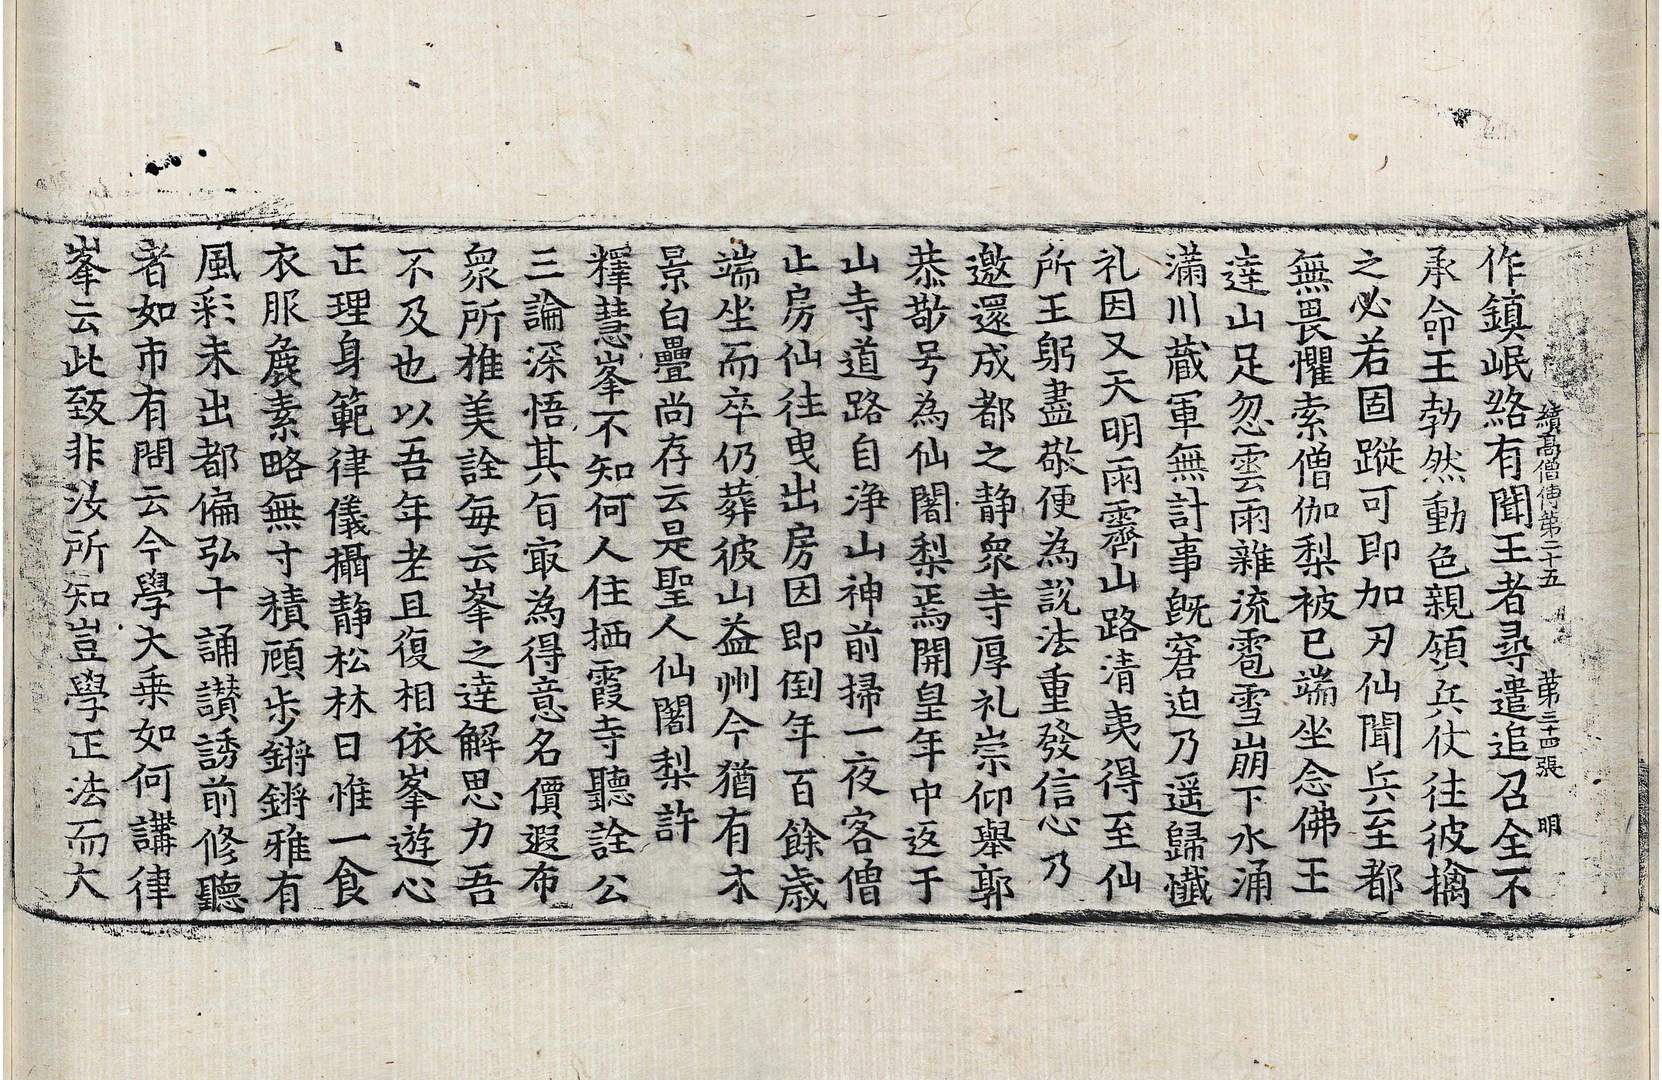 續高僧傳第二十五 第三十四張 明
作鎮岷絡有聞王者尋遣追召全不
承命王勃然動色親領兵仗往彼擒
之必若固蹤可即加刃仙聞兵至都
無畏懼索僧伽梨被已端坐念佛王
達山足忽雲雨雜流雹雪崩下水涌
滿川藏軍無計事既窘迫乃遥歸懺
礼因又天明雨霽山路清夷得至仙
所王躬盡敬便為說法重發信心乃
邀還成都之静衆寺厚礼崇仰舉郭
恭敬号為仙闍梨焉開皇年中返于
山寺道路自淨山神前掃一夜客僧
止房仙往曳出房因即倒年百餘歳
端坐而卒仍葬彼山益州今猶有木
景白疊尚存云是聖人仙闍梨許
釋慧峯不知何人住栖霞寺聽詮公
三論深悟其旨㝡為得意名價遐布
衆所推美詮每云峯之達解思力吾
不及也以吾年老且復相依峯遊心
正理身範律儀攝静松林日惟一食
衣服麁素略無寸積顧步鏘鏘雅有
風彩未出都偏弘十誦讃誘前修聽
者如市有問云今學大乗如何講律
峯云此致非汝所知豈學正法而大